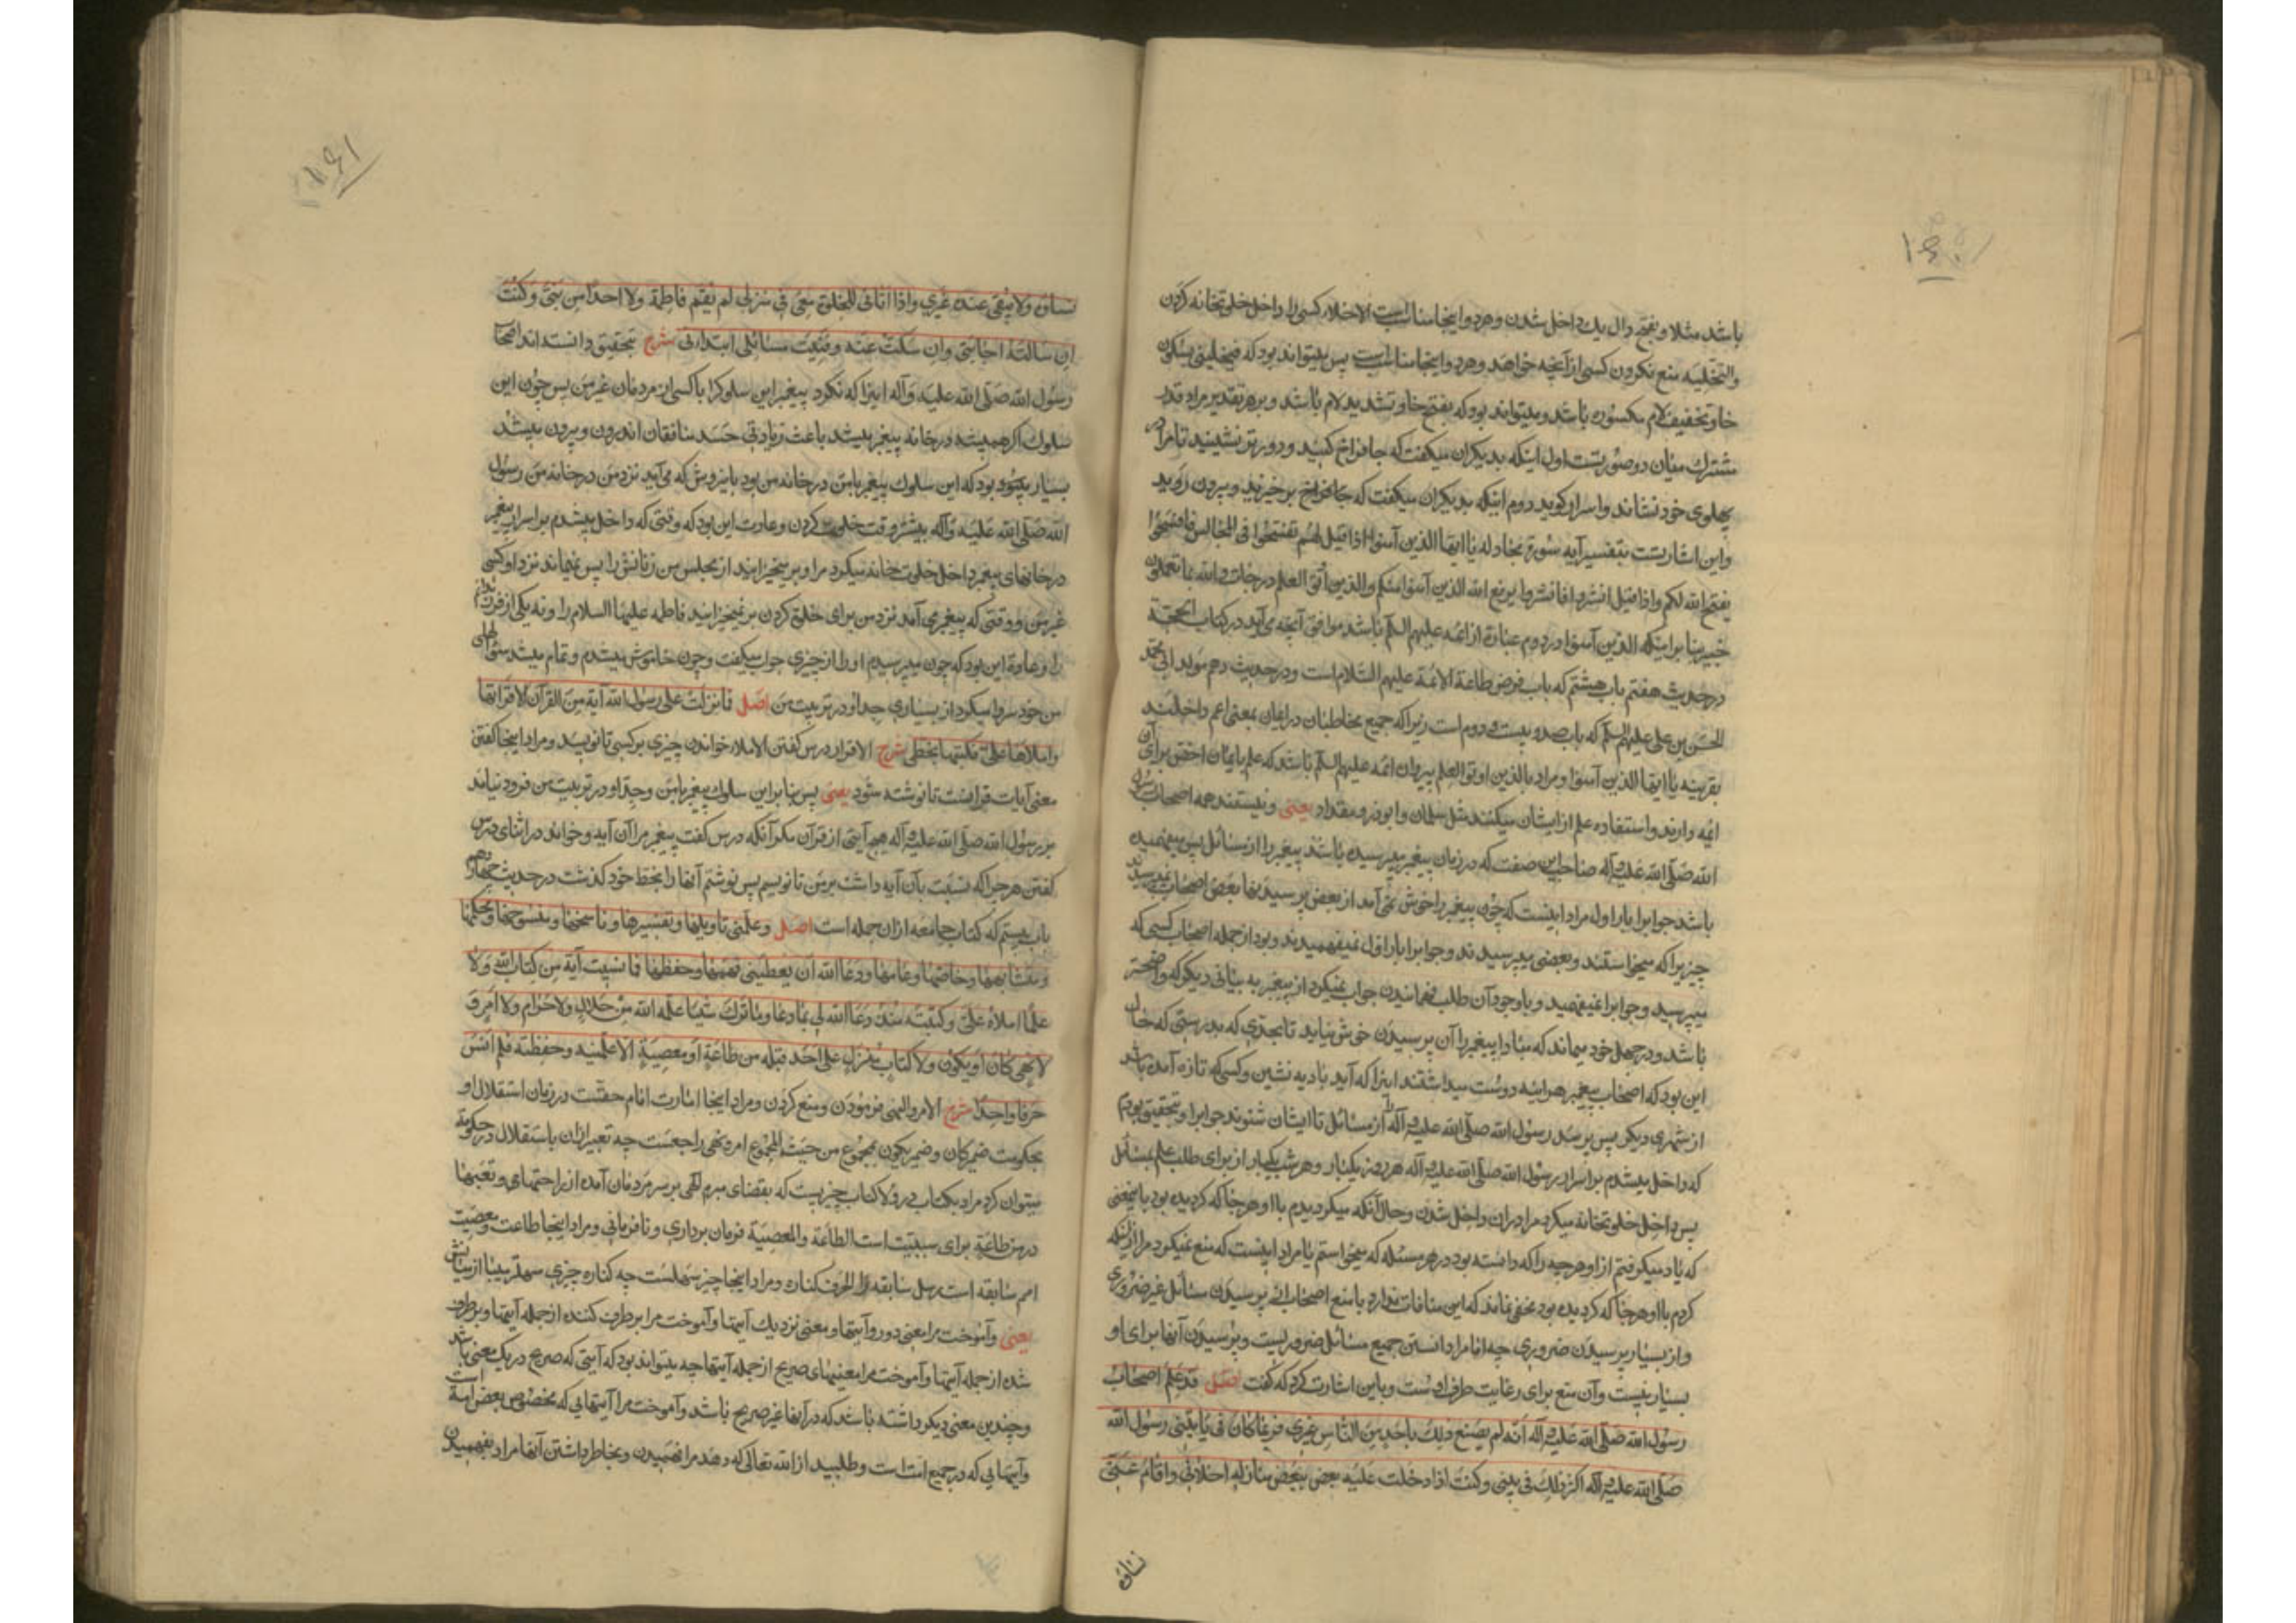 ۱۶۰
باشد مثلا و بفتح دال یک داخل شدن و هر دو اینجا مناسب است الاخلاء کسی را داخل خلوتخانه کردن
والتخلیه منع نکردن کسی از آنچه خواهد و هر دو اینجا مناسب است پس میتواند بود که فیخلینی بسکون
خا و تخفیف لام مکسوره باشد و میتواند بود که بفتح خا و تشدید لام باشد و بر هر تقدیر مراد قدر
مشترک میان دو صورتست اول اینکه بدیگران میگفت که جا فراخ کنید و دورتر نشینید تا مرا در
پهلوی خود نشاند و اسرار گوید دوم اینکه بدیگران میگفت که جا فراخ برخیزید و بیرون روید
و این اشارتست بتفسیر آیه سوره مجادله یا ایها الذین آمنوا اذا قیل لکم تفسحوا فی المجالس فافسحوا
یفسح الله لکم واذا قیل انشزوا فانشزوا یرفع الله الذین آمنوا منکم والذین اوتوا العلم درجات والله بما تعملون
خبیر بنا بر اینکه الذین آمنوا در دوم عبارة از ائمه علیهم السلم باشد موافق آنچه می‌آید در کتاب الحجة
در حدیث هفتم باب هشتم که باب فرض طاعة الائمة علیهم السلام است و در حدیث دهم مولد ابی محمد
الحسن بن علی علیهم السلم که باب صد و بیست و دوم است زیرا که جمیع مخاطبان در ایمان بمعنی اعم داخلند
بقرینه یا ایها الذین آمنوا و مراد بالذین اوتوا العلم پیروان ائمه علیهم السلم باشد که علم بایمان اخص برای آن
ائمه دارند و استفاده علم از ایشان میکنند مثل سلمان و ابوذر و مقداد یعنی و نیستند همه اصحاب رسول
الله صلی الله علیه وآله صاحب این صفت که در زمان پیغمبر پرسیده باشد پیغمبر را از مسائل پس میفهمیده
باشد جواب را بار اول مراد اینست که چون پیغمبر را خوش نمی‌آمد از بعض پرسیدنها بعض اصحاب نمیپرسیدند
چیزیرا که میخواستند و بعضی میپرسیدند و جواب را بار اول نمیفهمیدند و بود از جمله اصحاب کسی که
میپرسید و جواب را نمیفهمید و با وجود آن طلب فهمانیدن جواب نمیکرد از پیغمبر به بیانی دیگر که واضحتر
باشد و در جهل خود میماند که مبادا پیغمبر را آن پرسیدن خوش نیاید تا بحدی که بدرستی که حال
این بود که اصحاب پیغمبر هر اینه دوست میداشتند اینرا که آید بادیه نشین و کسی که تازه آمده باشد
از شهری دیگر پس پرسد رسول الله صلی الله علیه وآله را از مسائل تا ایشان شنوند جواب را و بتحقیق بودم
که داخل میشدم بر اسرار رسول الله صلی الله علیه وآله هر روز یکبار و هر شب یکبار از برای طلب علم بمسائل
پس داخل خلوتخانه میکرد مرا در آن داخل شدن و حال آنکه میگردیدم با او هر جا که گردیده بود باینمعنی
که یاد میگرفتم از او هر چه را که دانسته بود در هر مسئله که میخواستم یا مراد اینست که منع نمیکرد مرا از اینکه
گردم با او هر جا که گردیده بود مخفی نماند که این منافات ندارد با منع اصحاب از پرسیدن مسائل غیر ضروری
و از بسیار پرسیدن ضروری چه امام را دانستن جمیع مسائل ضروریست و پرسیدن آنها برای او
بسیار نیست و آن منع برای رعایت طرف اوست و باین اشارت کرد که گفت اصل قد علم اصحاب
رسول الله صلی الله علیه وآله انه لم یصنع ذلک باحد من الناس غیری فربما کان فی بیتی یأتینی رسول الله
صلی الله علیه وآله اکثر ذلک فی بیتی و کنت اذا دخلت علیه بعض منازله اخلانی واقام عنی
نسائه
۱۶۱
نسائه ولا یبقی عنده غیری واذا اتانی للخلوة معی فی منزلی لم تقم فاطمة ولا احدا من بنی و کنت
ان سالته اجابنی وان سکت عنه وفنیت مسائلی ابتدأنی شرح بتحقیق دانسته‌اند اصحاب
رسول الله صلی الله علیه وآله اینرا که نکرد پیغمبر این سلوک را با کسی از مردمان غیر من پس چون این
سلوک اگر همیشه در خانه پیغمبر میشد باعث زیادتی حسد منافقان اندرون و بیرون میشد
بسیار میبود بود که این سلوک پیغمبر با من در خانه من بود باینروش که می‌آید نزد من در خانه من رسول
الله صلی الله علیه وآله بیشتر وقت خلوت کردن و عادت این بود که وقتی که داخل میشدم بر اسرار پیغمبر
در خانهای پیغمبر داخل خلوت خانه میکرد مرا و بر میخیزانید از مجلس من زنانش را پس نمیماند نزد او کسی
غیر من و وقتی که پیغمبر می آمد نزد من برای خلوة کردن بر نمیخیزانید فاطمه علیها السلام را و نه یکی از فرزندانم
را و عادة این بود که چون میپرسیدم او را از چیزی جواب میگفت و چون خاموش میشدم و تمام میشد سؤالهای
من خود سر وا میکرد از بسیاری جد او در تربیت من اصل فما نزلت علی رسول الله آیة من القرآن الا اقرأنیها
واملاها علی فکتبتها بخطی شرح الاقراء درس گفتن الاملاء خواندن چیزی بر کسی تا نویسد و مراد اینجا گفتن
معنی آیات قرانست تا نوشته شود یعنی پس بنا بر این سلوک پیغمبر با من و جد او در تربیت من فرود نیامد
بر رسول الله صلی الله علیه وآله هیچ آیتی از قرآن مگر آنکه درس گفت پیغمبر مرا آن آیه و خواند در اثنای درس
گفتن هر چرا که نسبت بآن آیه داشت بر من تا نویسم پس نوشتم آنها را بخط خود گذشت در حدیث چهاردهم
باب بیستم که کتاب جامعه از ان جمله است اصل وعلمنی تاویلها وتفسیرها وناسخها ومنسوخها ومحکمها
ومتشابهها وخاصها وعامها ودعا الله ان یعطینی فهمها وحفظها فما نسیت آیة من کتاب الله ولا
علما املاه علی وکتبته منذ دعا الله لی بما دعا وما ترک شیئا علمه الله من حلال ولا حرام ولا امر و
لا نهی کان او یکون ولا کتاب منزل علی احد قبله من طاعة او معصیة الا علمنیه وحفظته فلم انس
حرفا واحدا شرح الامر والنهی فرمودن و منع کردن و مراد اینجا اشارت امام حقست در زمان استقلال او
بحکومت ضمیر کان و ضمیر یکون بمجموع من حیث المجموع امر و نهی راجعست چه تعبیر از ان باستقلال در حکومة
میتوان کرد مراد بکتاب در ولا کتاب چیزیست که بقضای مبرم الهی بر سر مردمان آمده از راحتهای و تعبها
در من طاعة برای سببیت است الطاعة والمعصیة فرمان برداری و نافرمانی و مراد اینجا طاعت و معصیت
امم سابقه است رسل سابقه را الحرف کناره و مراد اینجا چیز سهلست چه کناره چیزی سهلتر میباشد از میانش
یعنی و آموخت مرا معنی دور و آیتها و معنی نزدیک آیتها و آموخت مرا بر طرف کننده از جمله آیتها و بر طرف
شده از جمله آیتها و آموخت مرا معنیهای صریح از جمله آیتها چه میتواند بود که آیتی که صریح در یک معنی باشد
و چندین معنی دیگر داشته باشد که در آنها غیر صریح باشد و آموخت مرا آیتهایی که مخصوص بعض امة است
و آیتهایی که در جمیع امت است و طلبید از الله تعالی که دهد مرا فهمیدن و بخاطر داشتن آنها مراد بفهمیدن